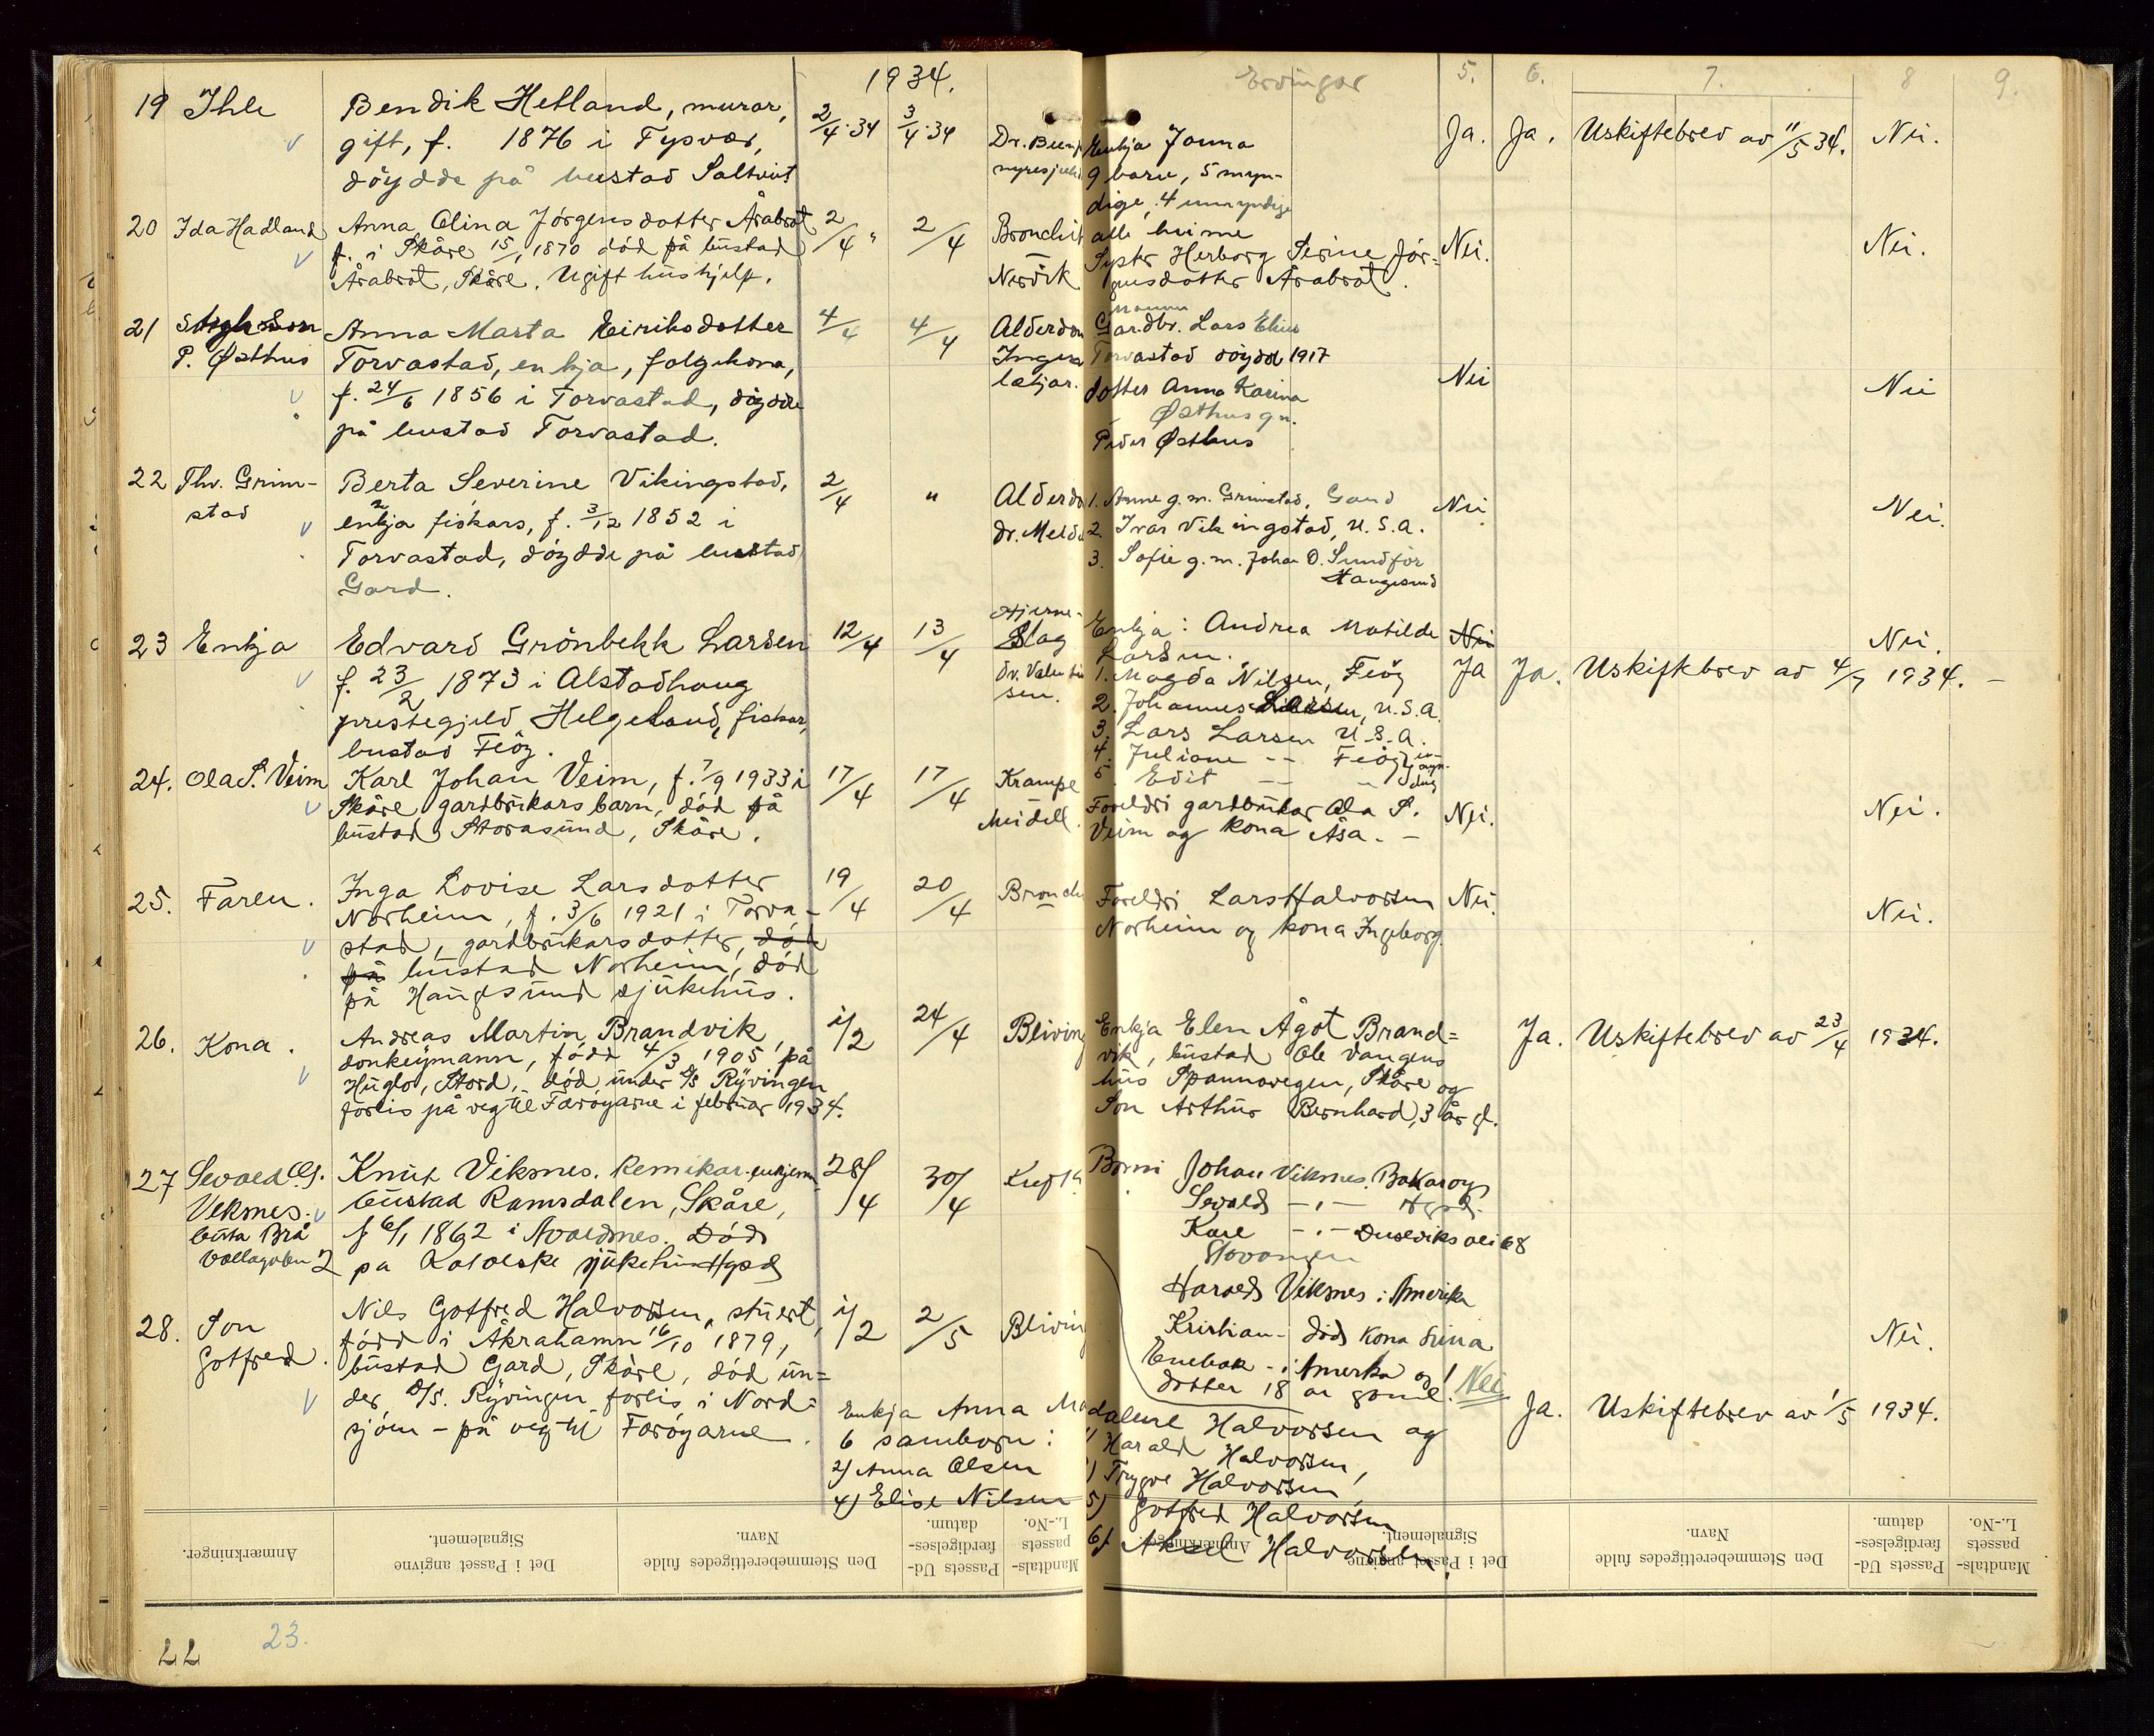 1934.
Ervingar 5. 6. 7. 8 9.
19 Ihle Bendik Hetland, murar, 2/4·34 3/4·34 Ja. Ja. Uskiftebrev av 11/5 34. Nei.
gift, f. 1876 i Tysvær, Dr. Enkja Janna
døydde på bustad Saltveit 9 barn, 5 myn-
dige, 4 umyndige
alle heime
20 Ida Hadland Anna Olina Jörgensdotter Årabrot 2/4 " 2/4 Bronchit Systr Herborg Serine Jör= Nei. Nei.
f. i Skåre 15/1 1870 död på bustad gensdotter Årabrot.
Årabrot, Skåre. Ugift hushjelp. Nervik
21 P. Østhus Anna Marta Eiriksdotter 4/4 4/4 Alderdom Mannen Gardbr. Lars Elius
Torvastad, enkja, folgekona, Ingen Torvastad döydde 1917
f. 24/6 1856 i Torvastad, döydde lækjar. dotter Anna Karina Nei Nei
på bustad Torvastad. Østhus g.m.
Peder Østhus
22 Thv. Grim- Berta Severine Vikingstad, 2/4 " Alderdo 1. Anne g.m. Grimstad, Gard Nei Nei.
stad enkja fiskars, f. 3/12 1852 i dr. Meide 2. Ivar Vikingstad, U.S.A.
Torvastad, döydde på bustad 3. Sofie g.m. Johan O. Sundfør
Gard. Haugesund
23 Enkja Edvard Grönbekk Larsen 12/4 13/4 Hjerne- Slag Enkja: Andrea Matilde Nei Nei.
f. 23/2 1873 i Alstadhaug dr. Valentin Larsen. Ja Ja. Uskiftebrev av 4/7 1934. –
prestegjeld Helgeland, fiskar, sen. 1. Magda Nilsen, Feöy
bustad Feöy. 2. Johannes Larsen, U.S.A.
3. Lars Larsen U.S.A.
4. Juliane -- Feöy
5. Edit -- "
24. Ola S. Veim Karl Johan Veim, f. 7/9 1933 i 17/4 17/4 Krampe Foreldri gardbrukar Ola S. Nei. Nei.
Skåre gardbrukars barn, död på Meidell. Veim og kona Åsa. –
bustad Storasund, Skåre.
25. Faren. Inga Lovise Larsdotter 19/4 20/4 Bronch Foreldri Lars Halvorsen Nei. Nei.
Norheim, f. 3/6 1921 i Torva- Norheim og kona Ingeborg.
stad, gardbrukarsdotter, död
på bustad Norheim, död
på Haugesund sjukehus.
26. Kona. Andreas Martin Brandvik, i/2 24/4 Bliving Enkja Elen Ågot Brand= Ja. Uskiftebrev av 23/4 1934.
donkeymann, född 4/3 1905 på vik, bustad Ole Vangens
Huglo, Stord, död under D/S Ryvingen hus Spannavegen, Skåre og
forlis på veg til Færöyarne i februar 1934. Son Arthur Bernhard, 3 år gl.
27 Sevald Knut Viksnes. Kemikar. enkjem. 28/4 30/4 Born Johan Viksnes. Bakarøy
Viksnes. bustad Ramsdalen, Skåre, Sevald -"- Hgsd.
f 6/1 1862 i Avaldsnes. Död Karl -"- Dusviksvei 68
Vallagaten 2 på Katolske sjukehus Hgsd Stavanger
Harald Viksnes i Amerika
Kristian - död kona Sina
i Amerika og
dotter 18 år gamel. Nei
28. Son Nils Gotfred Halvorsen, stuert, i/2 2/5 Bliving Nei.
Gotfred. född i Åkrahamn 16/10 1879,
bustad Gard, Skåre, död un=
der D/S. Ryvingen forlis i Nord= Ja. Uskiftebrev av 1/5 1934.
sjöen – på veg til Færöyarne.
Enkja Anna Madalene Halvorsen og
6 samborn: 1) Harald Halvorsen,
2) Anna Olsen 3) Trygve Halvorsen,
4) Elise Nilsen 5) Gotfred Halvorsen
6) Aksel Halvorsen.
Anmærkninger. Det i Passet angivne Signalement. Den Stemmeberettigedes fulde Navn. Passets Ud-færdigelses-datum. Mandtals-passets L.-No.
Anmærkninger. Det i Passet angivne Signalement. Den Stemmeberettigedes fulde Navn. Passets Ud-færdigelses-datum. Mandtals-passets L.-No.
22 23.